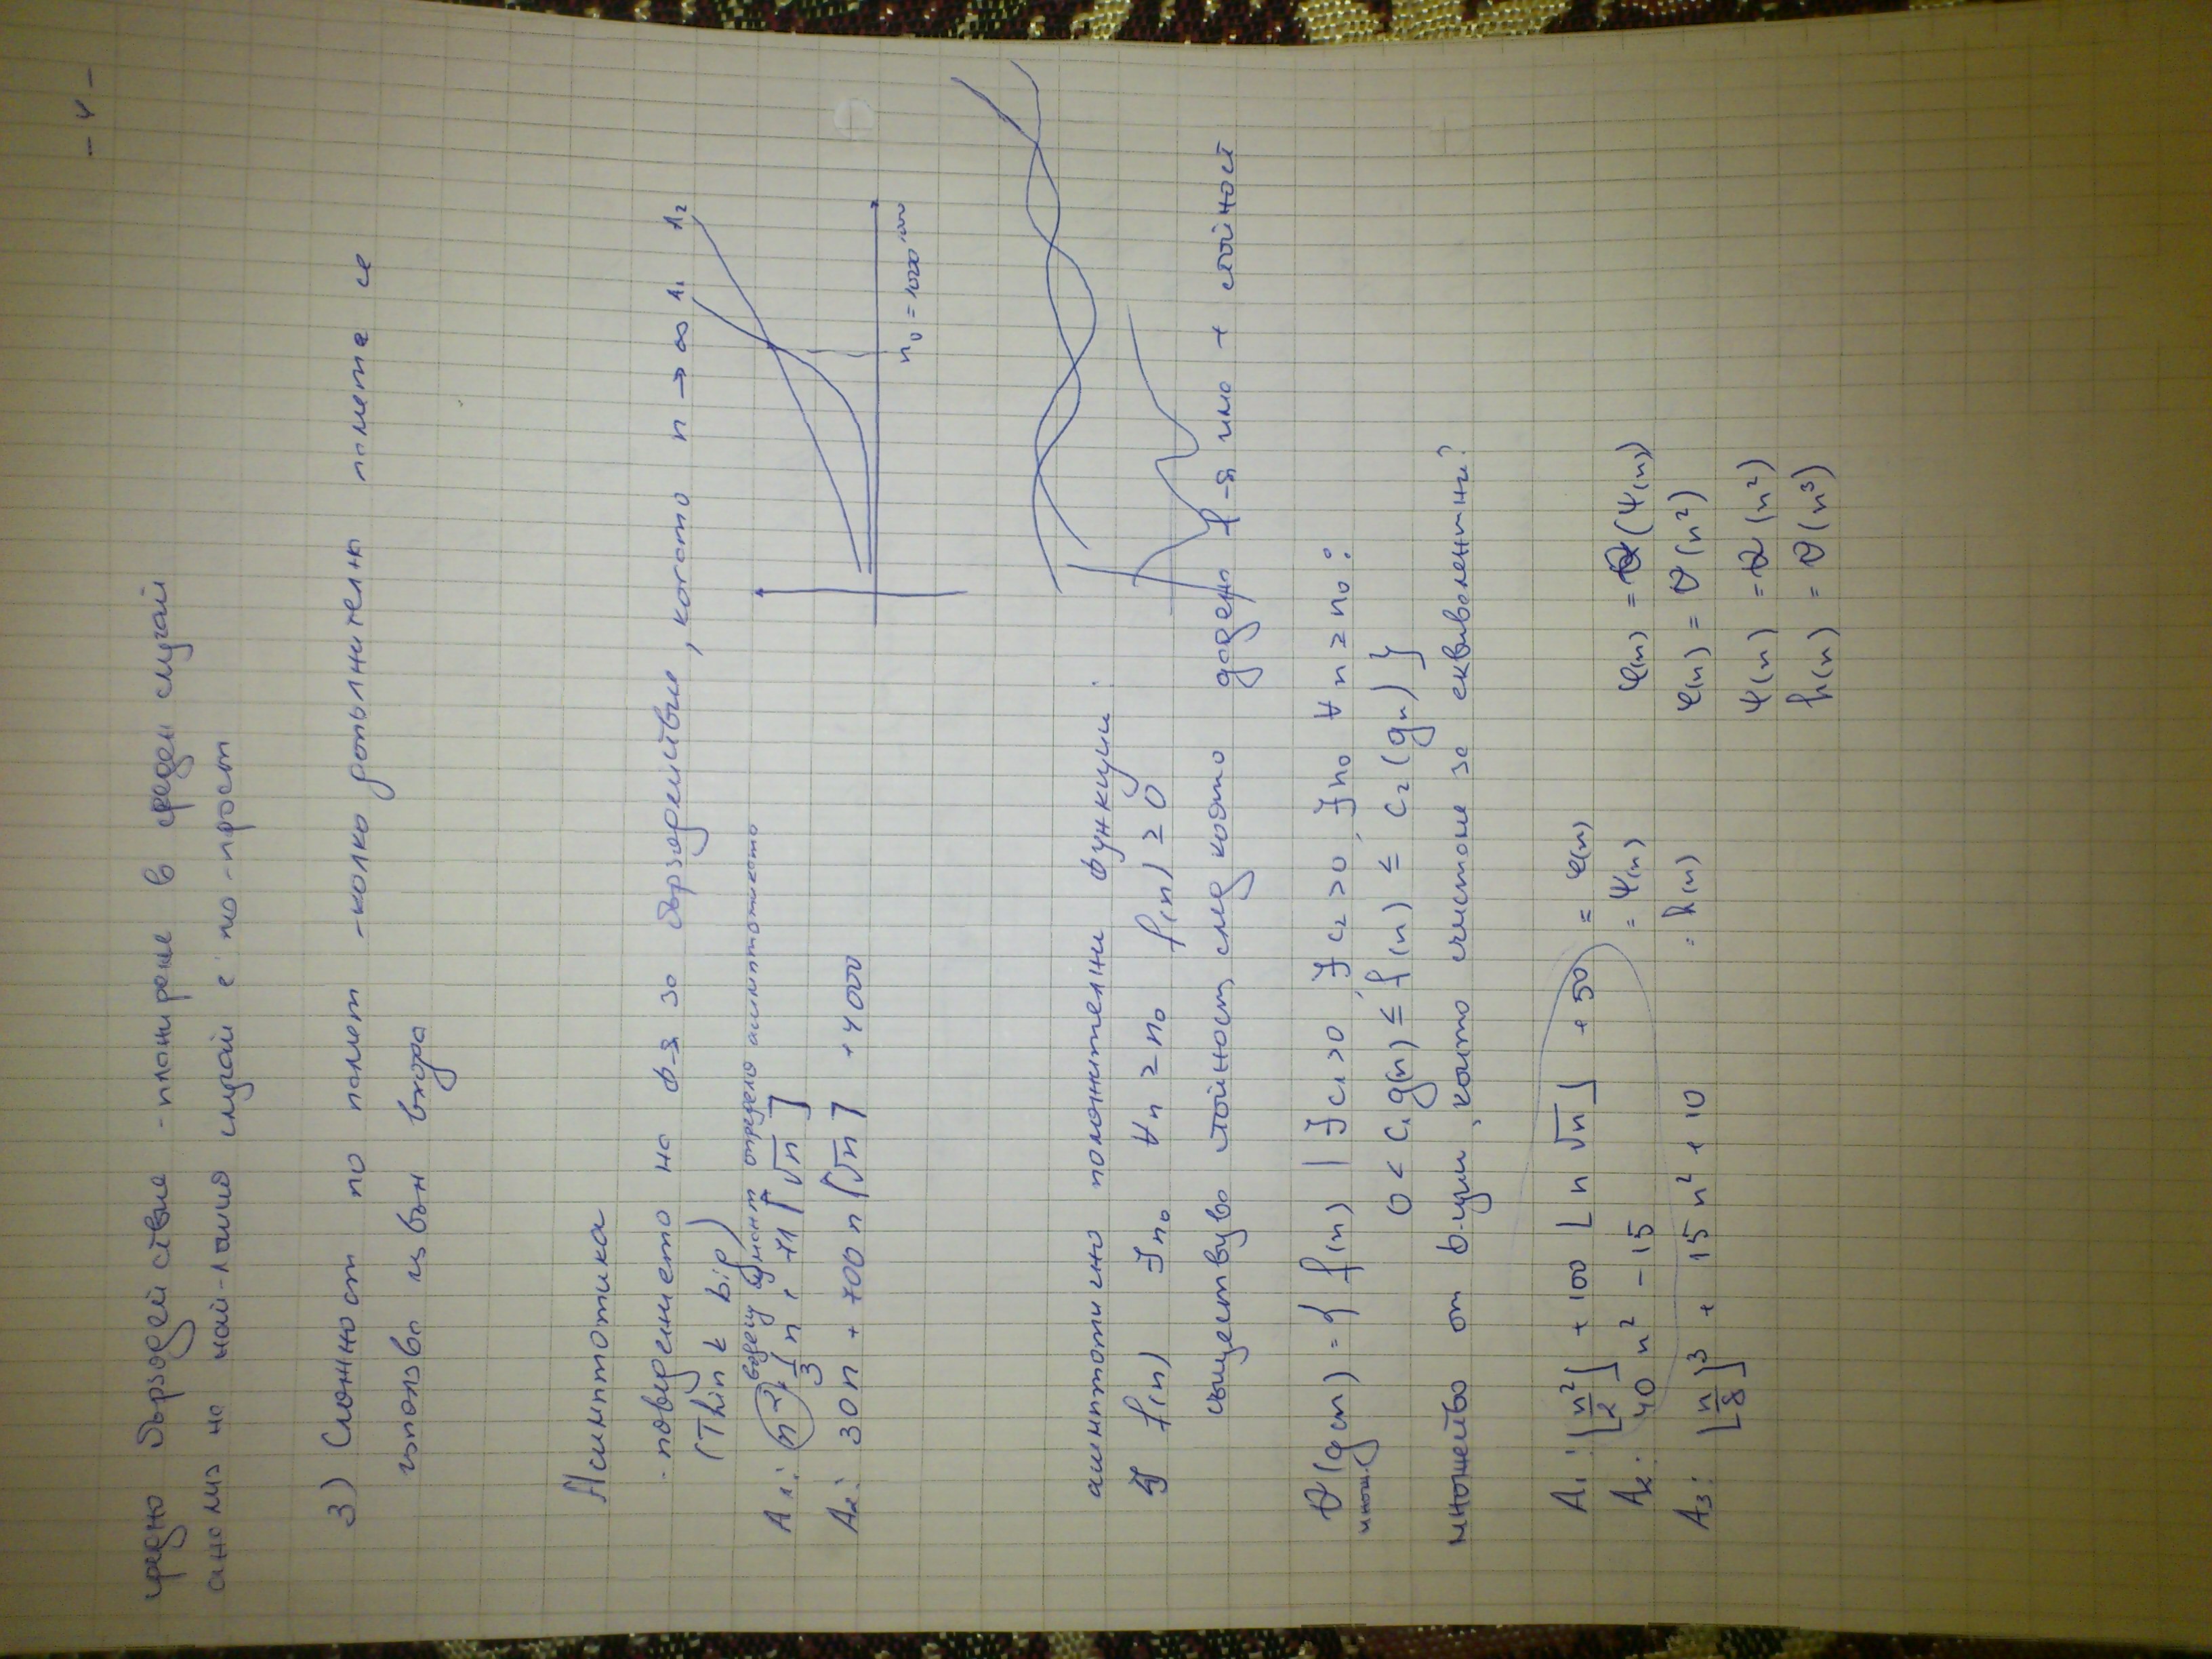 - 4 -
средно бързодействие - планиране в среден случай
анализ на най-лошия случай е по-прост
3) Сложност по памет - колко допълнителна памет се
използва извън входа
Асимптотика
- поведението на ф-я за бързодействие, когато n → ∞
(Think big)
водещ определя асимптотиката
A1: n² + 1/3 n +
A2: 30n + 700 n ⌈√n⌉ + 4000
A1 A2
n₀ = 1000 000
асимптотично положителни функции.
f(n) ∃n₀ ∀n ≥ n₀ f(n) ≥ 0
съществува стойност, след която дадена f-я има + стойност
Θ(g(n)) = { f(n) | ∃ c₁>0, ∃ c₂>0, ∃n₀ ∀ n ≥ n₀ :
множ. 0 < c₁ g(n) ≤ f(n) ≤ c₂ (gn) }
множество от ф-ции, които считаме за еквивалентни?
A1: ⌊n²/2⌋ + 100 ⌊n √n⌋ + 50 = φ(n)
A2: 40 n² - 15 = ψ(n)
A3: ⌊n/8⌋³ + 15 n² + 10 = h(n)
φ(n) = Θ(ψ(n))
φ(n) = Θ(n²)
ψ(n) = Θ(n²)
h(n) = Θ(n³)